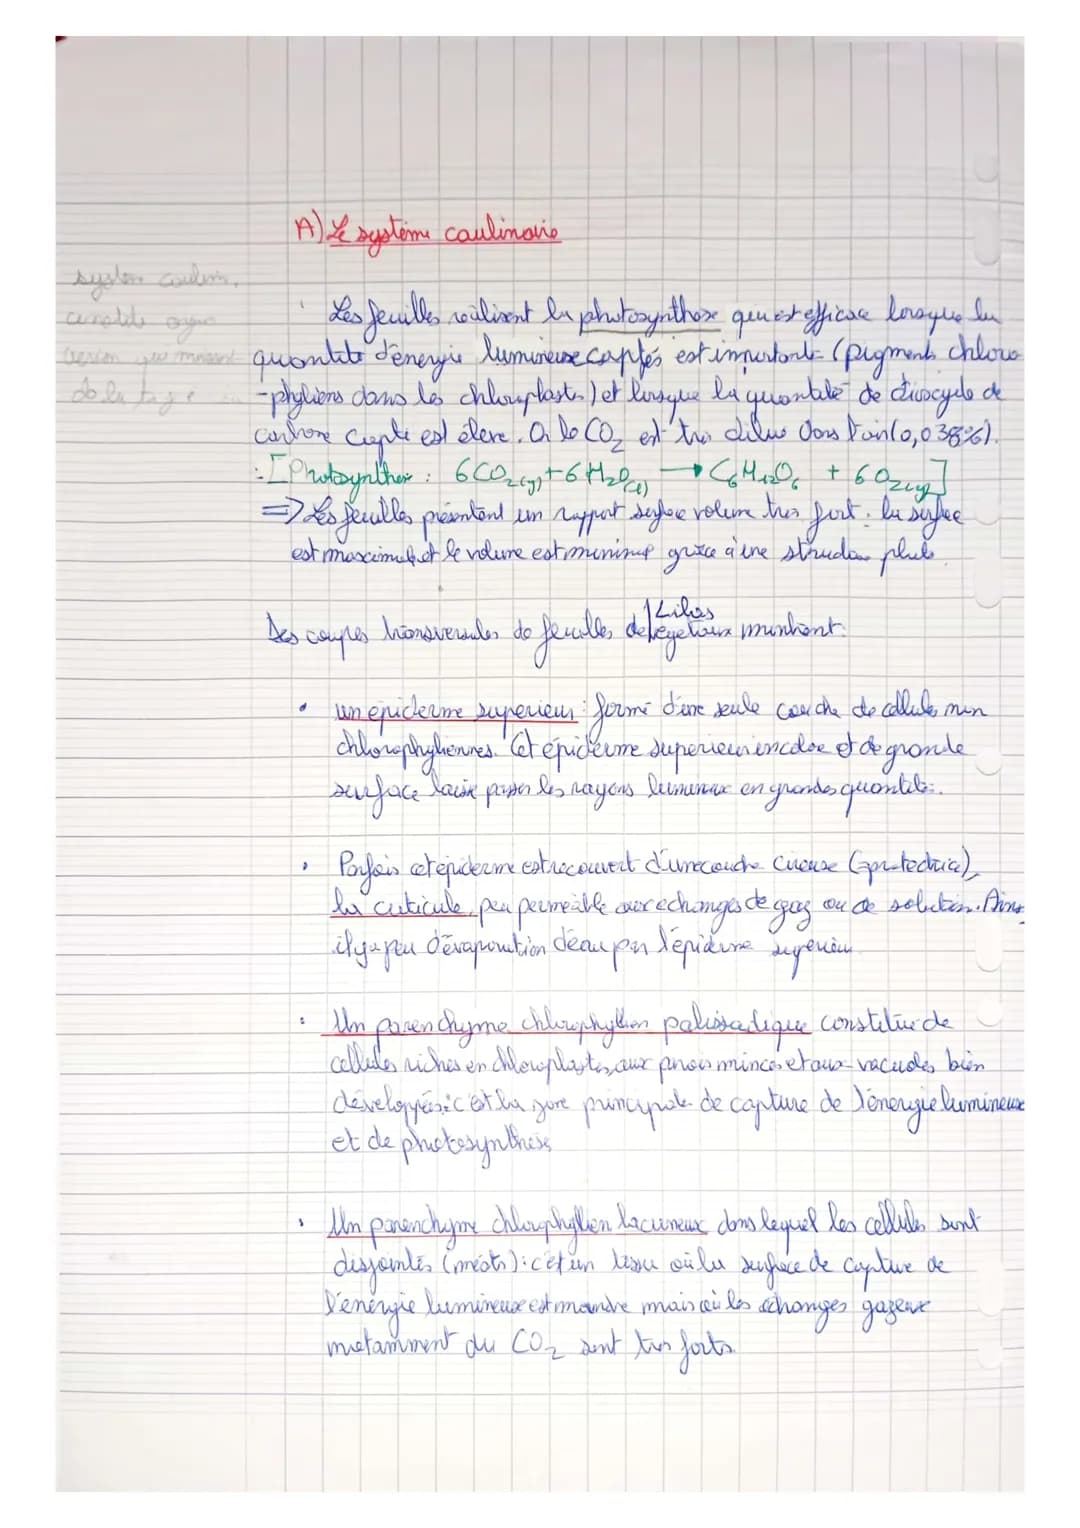 A) Le système caulinaire
system caulin.
Les feuilles réalisent la photosynthèse qui est efficace lorsque la
quantité d'énergie lumineuse captés est importante (pigments chloro
-phyliens dans les chloroplastes) et lorsque la quantité de dioxcyde de
carbone capté est élevé. Or le CO2 est très dilué dans l'air (0,038%).
: [Photosynthèse : 6CO2(g) + 6H2O(l) → C6H12O6 + 6O2(g)]
=> Les feuilles présentent un rapport surface volume très fort : la surface
est maximale et le volume est minime grâce à une structure plate
Des coupes transversales de feuilles de végétaux montrent:
Lilas
• un épiderme supérieur : formé d'une seule couche de cellules non
chlorophyliennes. Cet épiderme supérieur incolore et de grande
surface laisse passer les rayons lumineux en grandes quantités.
• Parfois cet épiderme est recouvert d'une couche cireuse (protectrice),
la cuticule, peu perméable aux échanges de gaz ou de solution. Ainsi
il y a peu d'évaporation d'eau par l'épiderme supérieur
• Un parenchyme chlorophyllien palissadique constitué de
cellules riches en chloroplastes, aux parois minces et aux vacuoles bien
développées : c'est la zone principale de capture de l'énergie lumineuse
et de photosynthèse
• Un parenchyme chlorophyllien lacuneux dans lequel les cellules sont
disjointes (méats) : c'est un tissu où la surface de capture de
l'énergie lumineuse est moindre mais où les échanges gazeux
notamment du CO2 sont très forts.